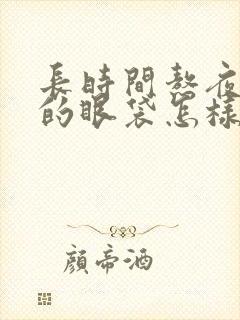 長時間熬夜
的眼袋怎樣
顔帝酒